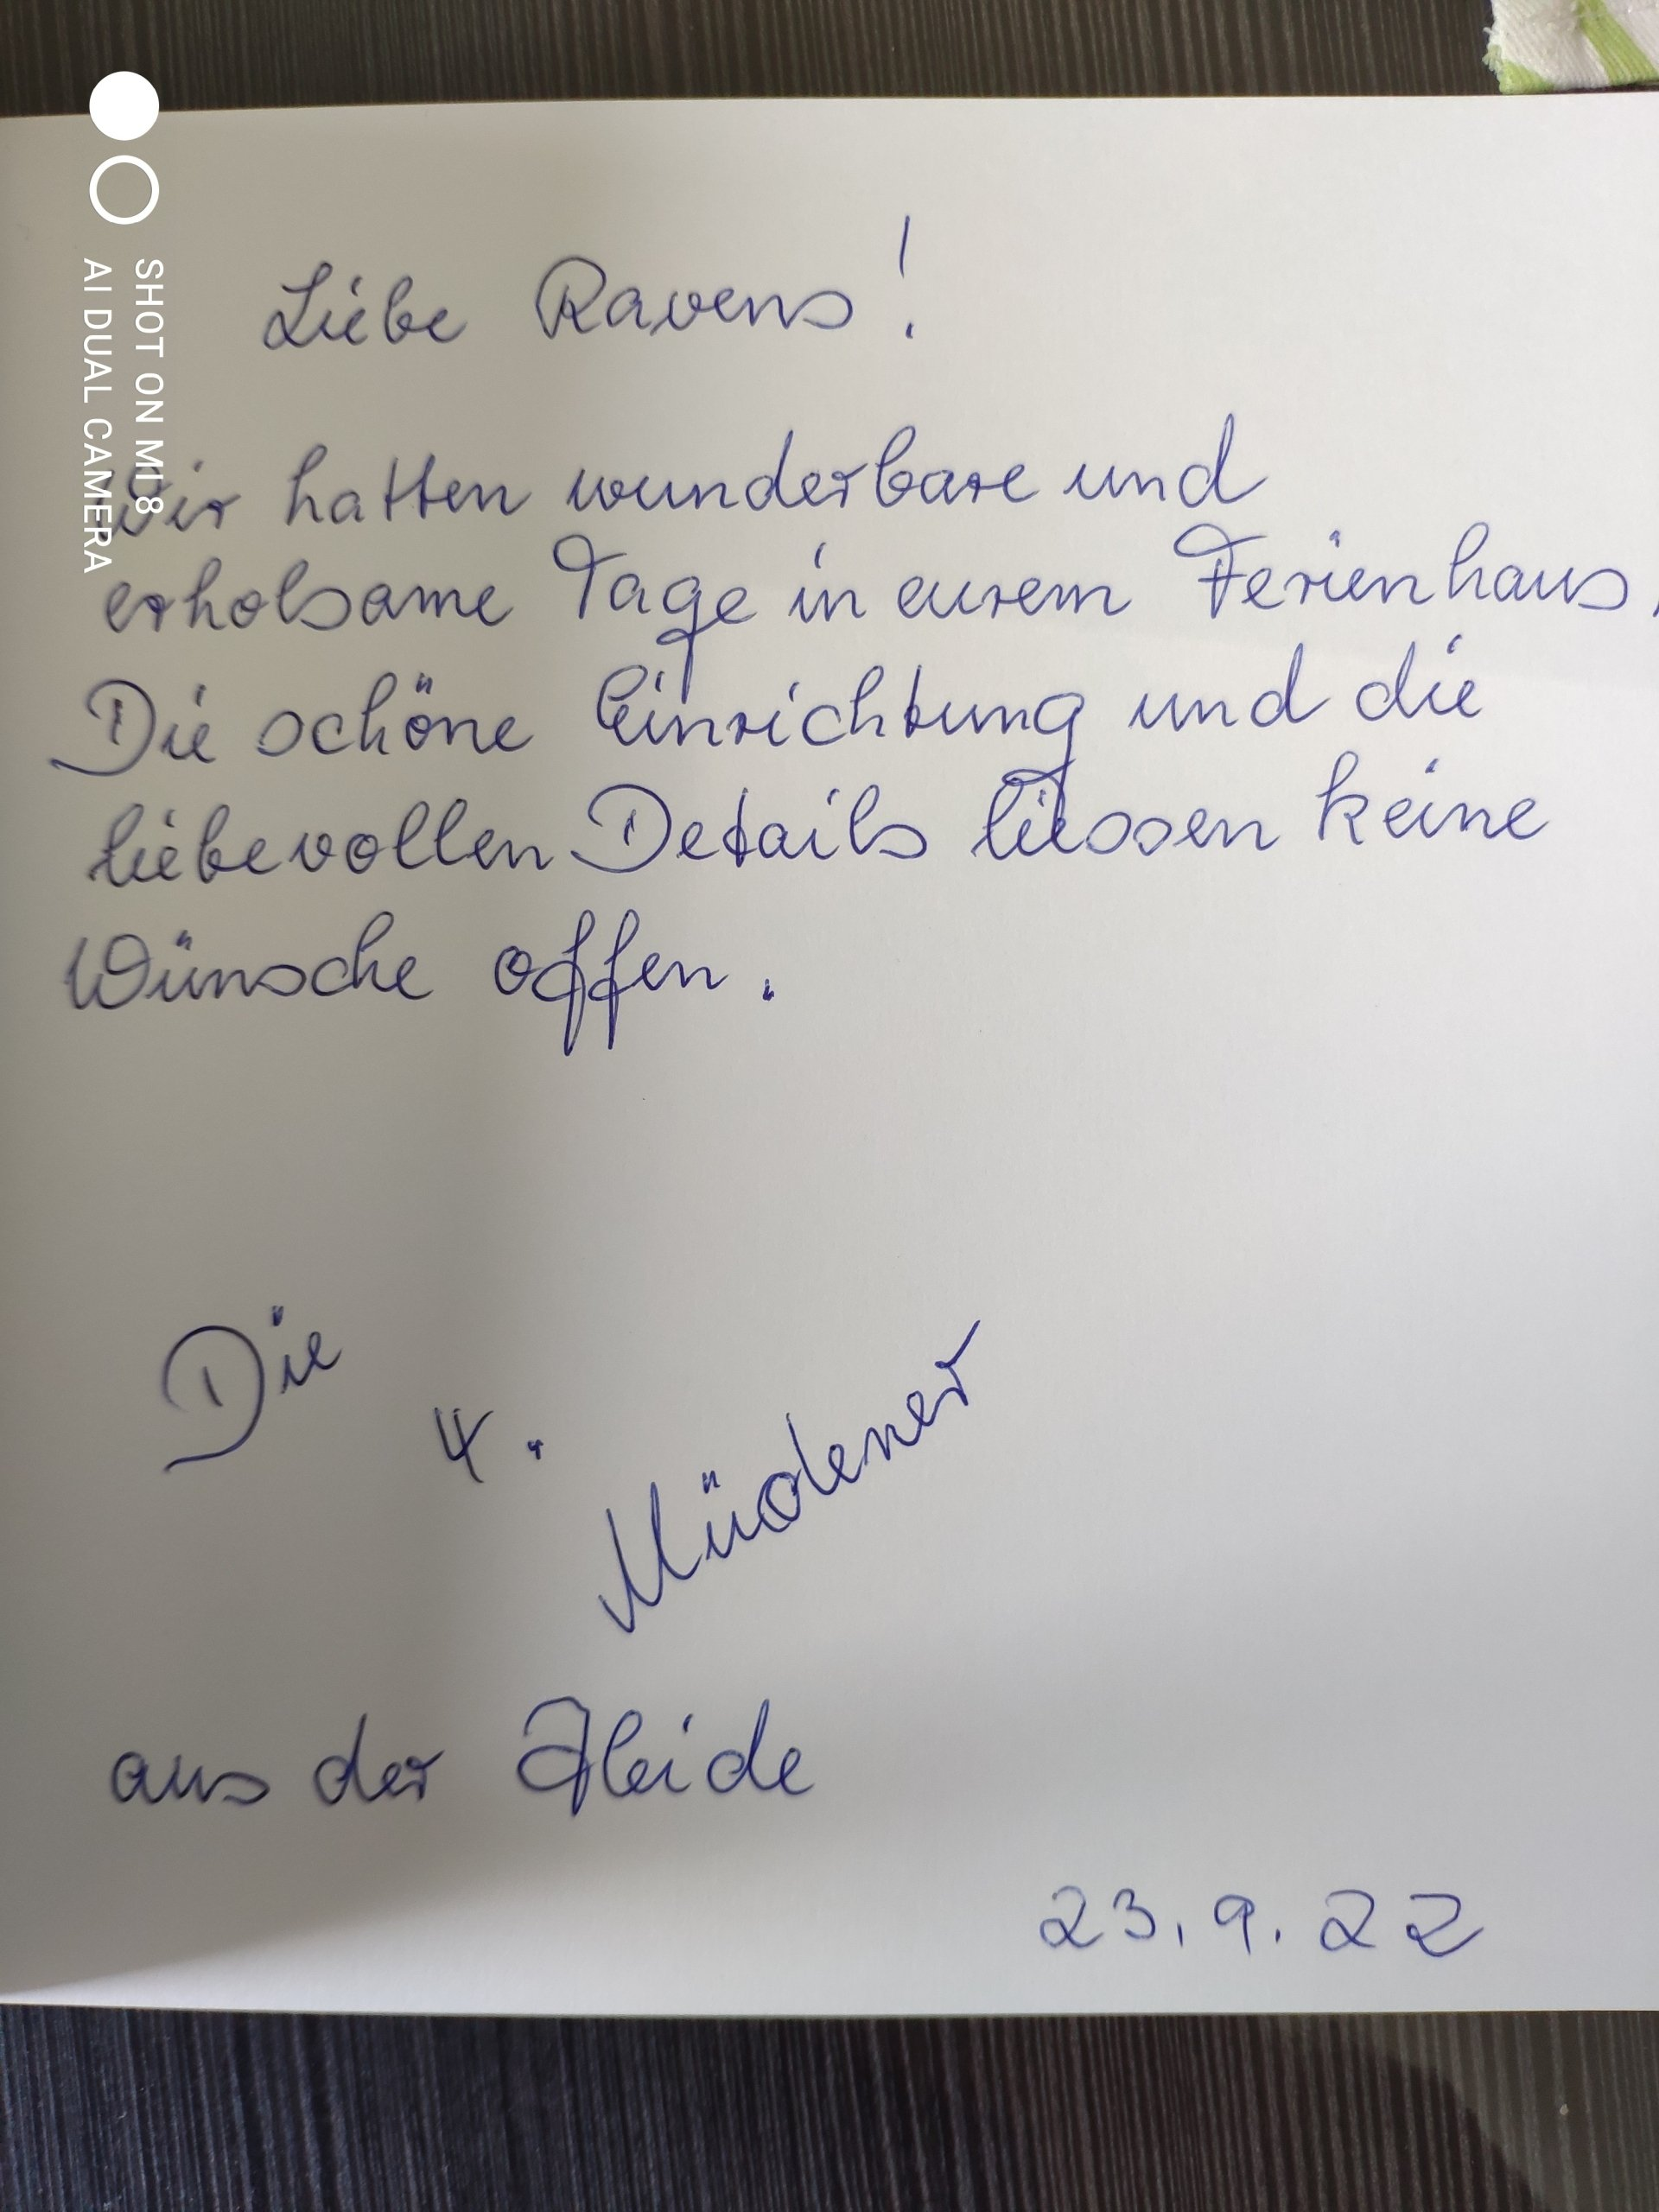 Liebe Ravens!
Wir hatten wunderbare und
erholsame Tage in eurem Ferienhaus.
Die schöne Einrichtung und die
liebevollen Details liessen keine
Wünsche offen.
Die
4.
Müdener
aus der Heide
23.9.22
SHOT ON MI 8
AI DUAL CAMERA